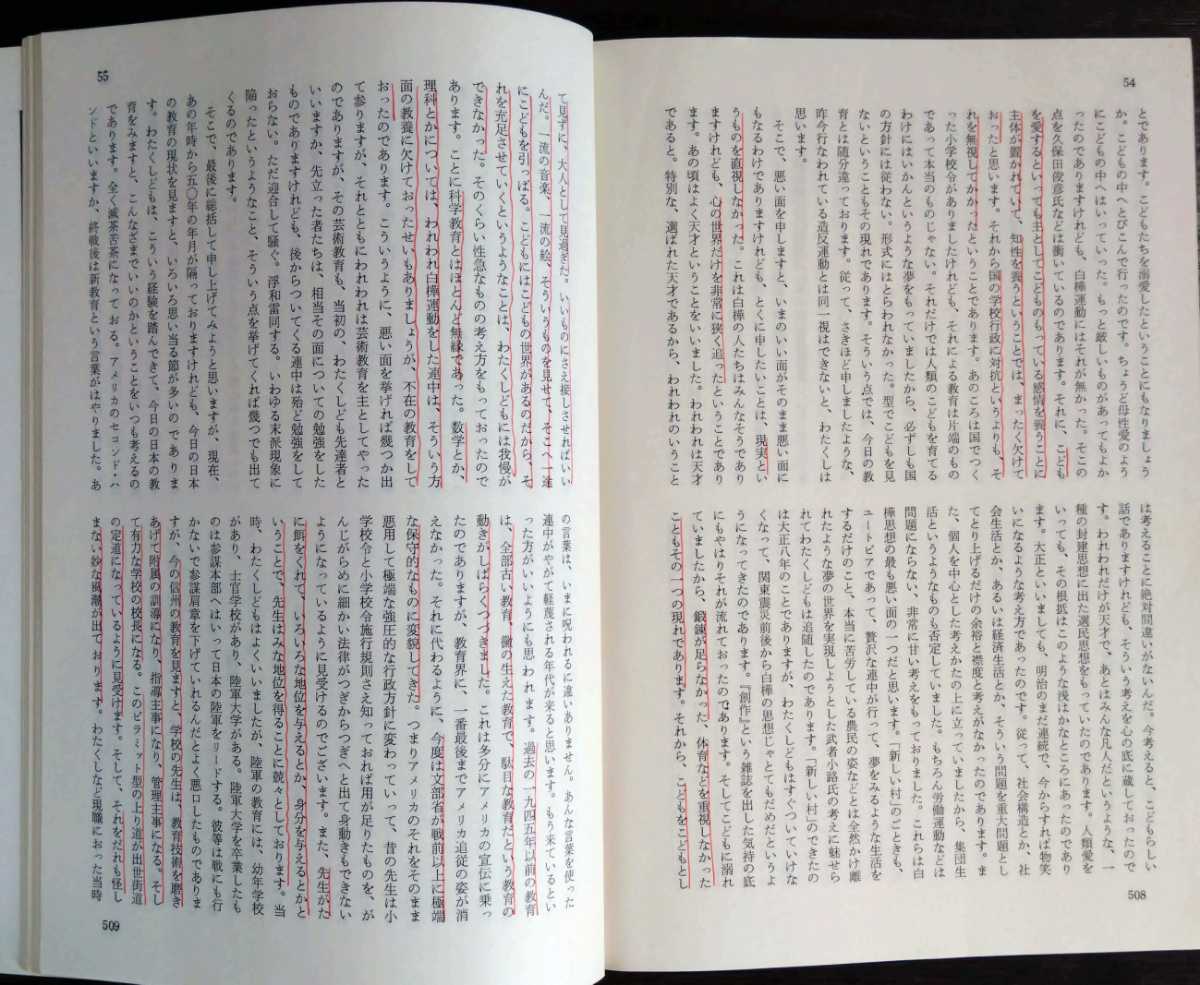 54
とであります。こどもたちを溺愛したということにもなりましょう
か。こどもの中へととびこんで行ったのです。ちょうど母性愛のよう
にこどもの中へはいっていった。もっと厳しいものがあってもよか
ったのでありますけれども、白樺運動にはそれが無かった。そこの
点を久保田俊彦氏などは衝いているのであります。それに、こども
を愛するといっても主としてこどものもっている感情を養うことに
主体が置かれていて、知性を養うということでは、まったく欠けて
おったと思います。それから国の学校行政に対抗というよりも、そ
れを無視してかかったということであります。あのころは国でつく
った小学校令がありましたけれども、それによる教育は片端のもの
であって本当のものじゃない。それだけでは人類のこどもを育てる
わけにはいかんというような夢をもっていましたから、必ずしも国
の方針には従わない。形式にはとらわれなかった。型でこどもを見
ないということもその現れであります。そういう点では、今日の教
育とは随分違っております。従って、さきほど申しましたような、
昨今行なわれている造反運動とは同一視はできないと、わたくしは
思います。
そこで、悪い面を申しますと、いまのいい面がそのまま悪い面に
もなるわけでありますけれども、とくに申したいことは、現実とい
うものを直視しなかった。これは白樺の人たちはみんなそうであり
ますけれども、心の世界だけを非常に狭く追ったということであり
ます。あの頃はよく天才ということをいいました。われわれは天才
であると。特別な、選ばれた天才であるから、われわれのいうこと
は考えることに絶対間違いがないんだ。今考えると、こどもらしい
話でありますけれども、そういう考えを心の底に蔵しておったので
す。われわれだけが天才で、あとはみんな凡人だというような、一
種の封建思想に出た選民思想をもっていたのであります。人類愛を
いっても、その根抵はこのような浅はかなところにあったのであり
ます。大正といいましても、明治のまだ連続で、今からすれば物笑
いになるような考え方であったのです。従って、社会構造とか、社
会生活とか、あるいは経済生活とか、そういう問題を重大問題とし
てとり上げるだけの余裕と襟度と考えがなかったのであります。ま
た、個人を中心とした考えかたの上に立っていましたから、集団生
活というようなものも否定していました。もちろん労働運動などは
問題にならない、非常に甘い考えをもっておりました。これらは白
樺思想の最も悪い面の一つだと思います。「新しい村」のごときも、
ユートピアであって、贅沢な連中が行って、夢をみるような生活を
するだけのこと、本当に苦労している農民の姿などとは全然かけ離
れたような夢の世界を実現しようとした武者小路氏の考えに魅せら
れてわたくしどもは追随したのであります。「新しい村」のできたの
は大正八年のことでありますが、わたくしどもはすぐついていけな
くなって、関東震災前後から白樺の思想じゃとてもだめだというよ
うになってきたのであります。『創作』という雑誌を出した気持の底
にもやはりそれが流れておったのであります。そしてこどもに溺れ
ていましたから、鍛錬が足らなかった、体育などを重視しなかった
こともその一つの現れであります。それから、こどもをこどもとし
508
55
て見ずに、大人として見過ぎた。いいものにさえ接しさせればいい
んだ。一流の音楽、一流の絵、そういうものを見せて、そこへ一途
にこどもを引っぱる。こどもにはこどもの世界があるのだから、そ
れを充足させていくというようなことは、わたくしどもには我慢が
できなかった。そのくらい性急なものの考え方をもっておったので
あります。ことに科学教育とはほとんど無縁であった。数学とか、
理科とかについては、われわれ白樺運動をした連中は、そういう方
面の教養に欠けておったせいもありましょうが、不在の教育をして
おったのであります。こういうように、悪い面を挙げれば幾つか出
て参りますが、それとともにわれわれは芸術教育を主としてやった
のでありますが、その芸術教育も、当初の、わたくしども先達者と
いいますか、先立った者たちは、相当その面についての勉強をした
ものでありますけれども、後からついてくる連中は殆ど勉強をして
おらない。ただ迎合して騒ぐ。浮和雷同する。いわゆる末派現象に
陥ったというようなこと、そういう点を挙げてくれば幾つでも出て
くるのであります。
そこで、最後に総括して申し上げてみようと思いますが、現在、
あの年時から五〇年の年月が隔っておりますけれども、今日の日本
の教育の現状を見ますと、いろいろ思い当る節が多いのでありま
す。わたくしどもは、こういう経験を踏んできて、今日の日本の教
育をみますと、こんなざまでいいのかということをいつも考えるの
であります。全く滅茶苦茶になっておる。アメリカのセコンド・ハ
ンドといいますか、終戦後は新教育という言葉がはやりました。あ
の言葉は、いまに呪われるに違いありません。あんな言葉を使った
連中がやがて軽蔑される年代が来ると思います。もう来ているとい
った方がいいようにも思われます。過去の一九四五年以前の教育
は、全部古い教育、黴の生えた教育で、駄目な教育だという教育の
動きがしばらくつづきました。これは多分にアメリカの宣伝に乗っ
たのでありますが、教育界に、一番最後までアメリカ追従の姿が消
えなかった。それに代わるように、今度は文部省が戦前以上に極端
な保守的なものに変貌してきた。つまりアメリカのそれをそのまま
悪用して極端な強圧的な行政方針に変わっていって、昔の先生は小
学校令と小学校令施行規則さえ知っておれば用が足りたものを、が
んじがらめに細かい法律がつぎからつぎへと出て身動きもできない
ようになっているように見受けるのでございます。また、先生がた
に餌をくれて、いろいろな地位を与えるとか、身分を与えるとかと
いうことで、先生はみんな地位を得ることに競々としております。当
時、わたくしどもはよくいいましたが、陸軍の教育には、幼年学校
があり、士官学校があり、陸軍大学がある。陸軍大学を卒業したも
のは参謀本部へはいって日本の陸軍をリードする。彼等は戦にも行
かないで参謀肩章を下げていいいれるんだとよく悪口したものでありま
すが、今の信州の教育を見ますと、学校の先生は、教育技術を磨き
あげて附属の訓導になり、指導主事になり、管理主事になる。そし
て有力な学校の校長になる。このピラミット型の上り道が出世街道
の定道になっているように見受けます。そして、それをだれも怪し
まない妙な風潮が出ております。わたくしなど現職におった当時
509